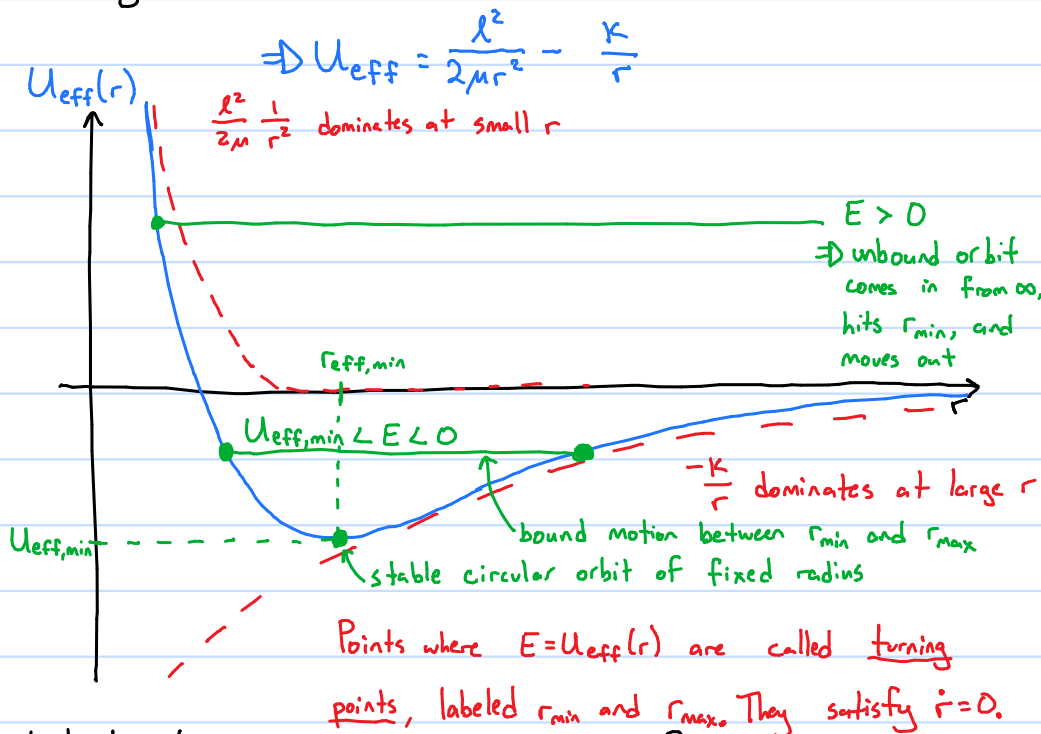 ⇒ U_eff = ℓ²/2μr² − k/r
U_eff(r)
ℓ²/2μ 1/r² dominates at small r
E > 0
⇒ unbound orbit
comes in from ∞,
hits r_min, and
moves out
r_eff,min
r
U_eff,min < E < 0
−k/r dominates at large r
bound motion between r_min and r_max
U_eff,min
stable circular orbit of fixed radius
Points where E = U_eff(r) are called turning
points, labeled r_min and r_max. They satisfy ṙ = 0.